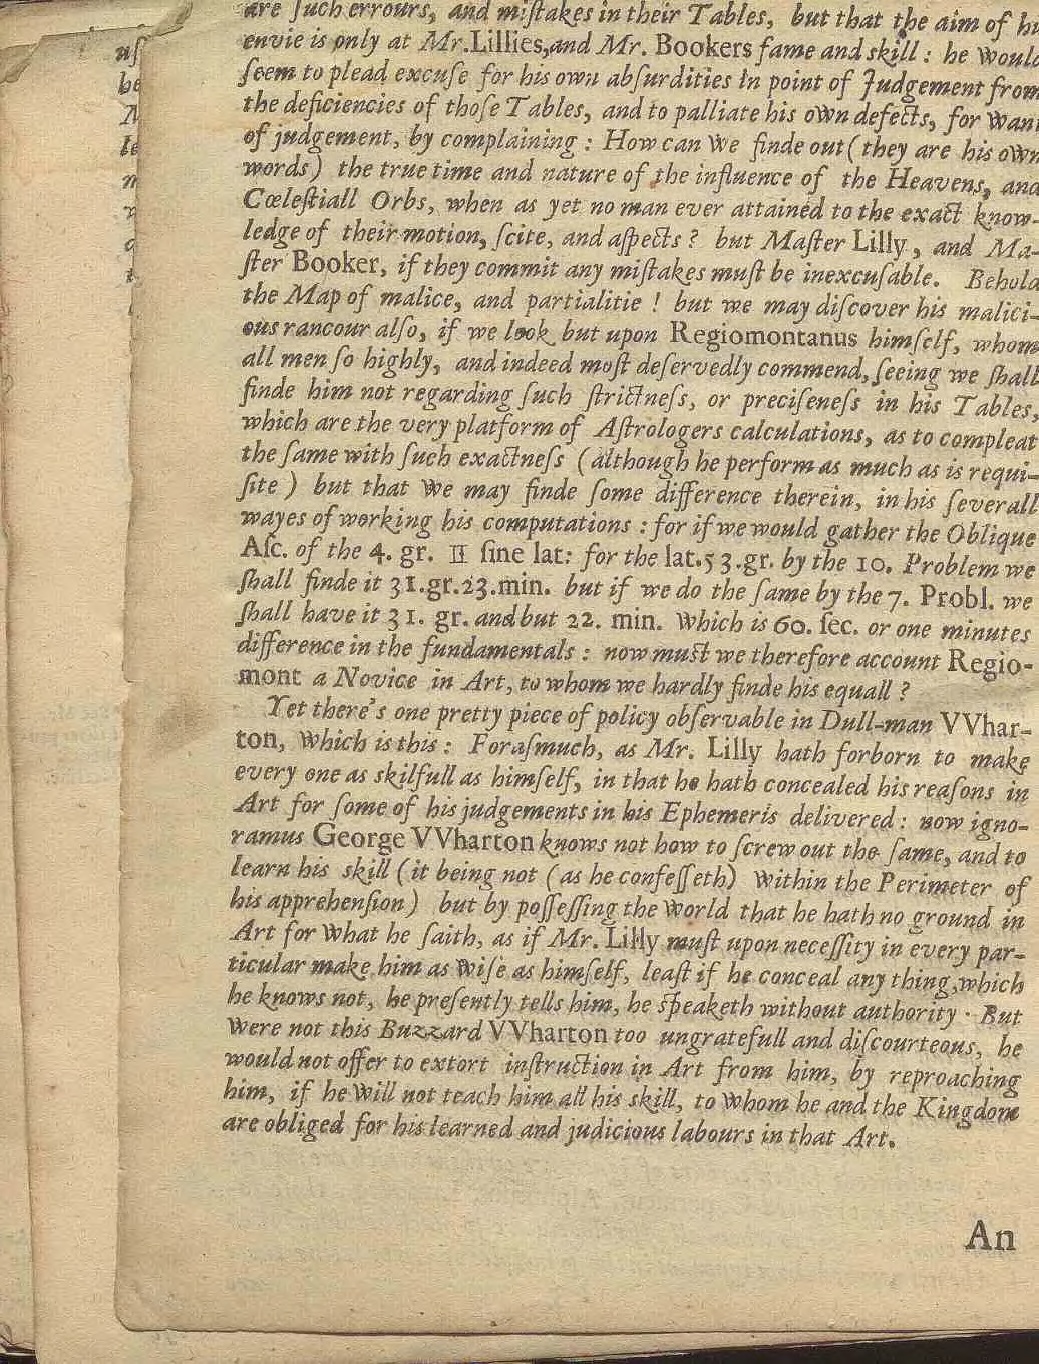 are ſuch errours, and miſtakes in their Tables, but that the aim of hi
envie is only at Mr. Lillies, and Mr. Bookers fame and skill: he would
ſeem to plead excuſe for his own abſurdities in point of Judgement from
the deficiencies of thoſe Tables, and to palliate his own defects, for want
of judgement, by complaining: How can we finde out (they are his own
words) the true time and nature of the influence of the Heavens, and
Cœleſtiall Orbs, when as yet no man ever attained to the exact know-
ledge of their motion, ſcite, and aſpects? but Maſter Lilly, and Ma-
ſter Booker, if they commit any miſtakes muſt be inexcuſable. Behold
the Map of malice, and partialitie! but we may diſcover his malici-
ous rancour alſo, if we look but upon Regiomontanus himſelf, whom
all men ſo highly, and indeed moſt deſervedly commend, ſeeing we ſhall
finde him not regarding ſuch ſtrictneſs, or preciſeneſs in his Tables,
which are the very platform of Aſtrologers calculations, as to compleat
the ſame with ſuch exactneſs (although he perform as much as is requi-
ſite) but that we may finde ſome difference therein, in his ſeverall
wayes of working his computations: for if we would gather the Oblique
Aſc. of the 4. gr. ♊ ſine lat: for the lat. 53. gr. by the 10. Problem we
ſhall finde it 31. gr. 23. min. but if we do the ſame by the 7. Probl. we
ſhall have it 31. gr. and but 22. min. which is 60. ſec. or one minutes
difference in the fundamentals: now muſt we therefore account Regio-
mont a Novice in Art, to whom we hardly finde his equall?
Yet there's one pretty piece of policy obſervable in Dull-man VVhar-
ton, which is this: Foraſmuch, as Mr. Lilly hath forborn to make
every one as skilfull as himſelf, in that he hath concealed his reaſons in
Art for ſome of his judgements in his Ephemeris delivered: now igno-
ramus George VVharton knows not how to ſcrew out the ſame, and to
learn his skill (it being not (as he confeſſeth) within the Perimeter of
his apprehenſion) but by poſſeſſing the world that he hath no ground in
Art for what he ſaith, as if Mr. Lilly muſt upon neceſſity in every par-
ticular make him as wiſe as himſelf, leaſt if he conceal any thing, which
he knows not, he preſently tells him, he ſpeaketh without authority. But
were not this Buzzard VVharton too ungratefull and diſcourteous, he
would not offer to extort inſtruction in Art from him, by reproaching
him, if he will not teach him all his skill, to whom he and the Kingdome
are obliged for his learned and judicious labours in that Art.
An